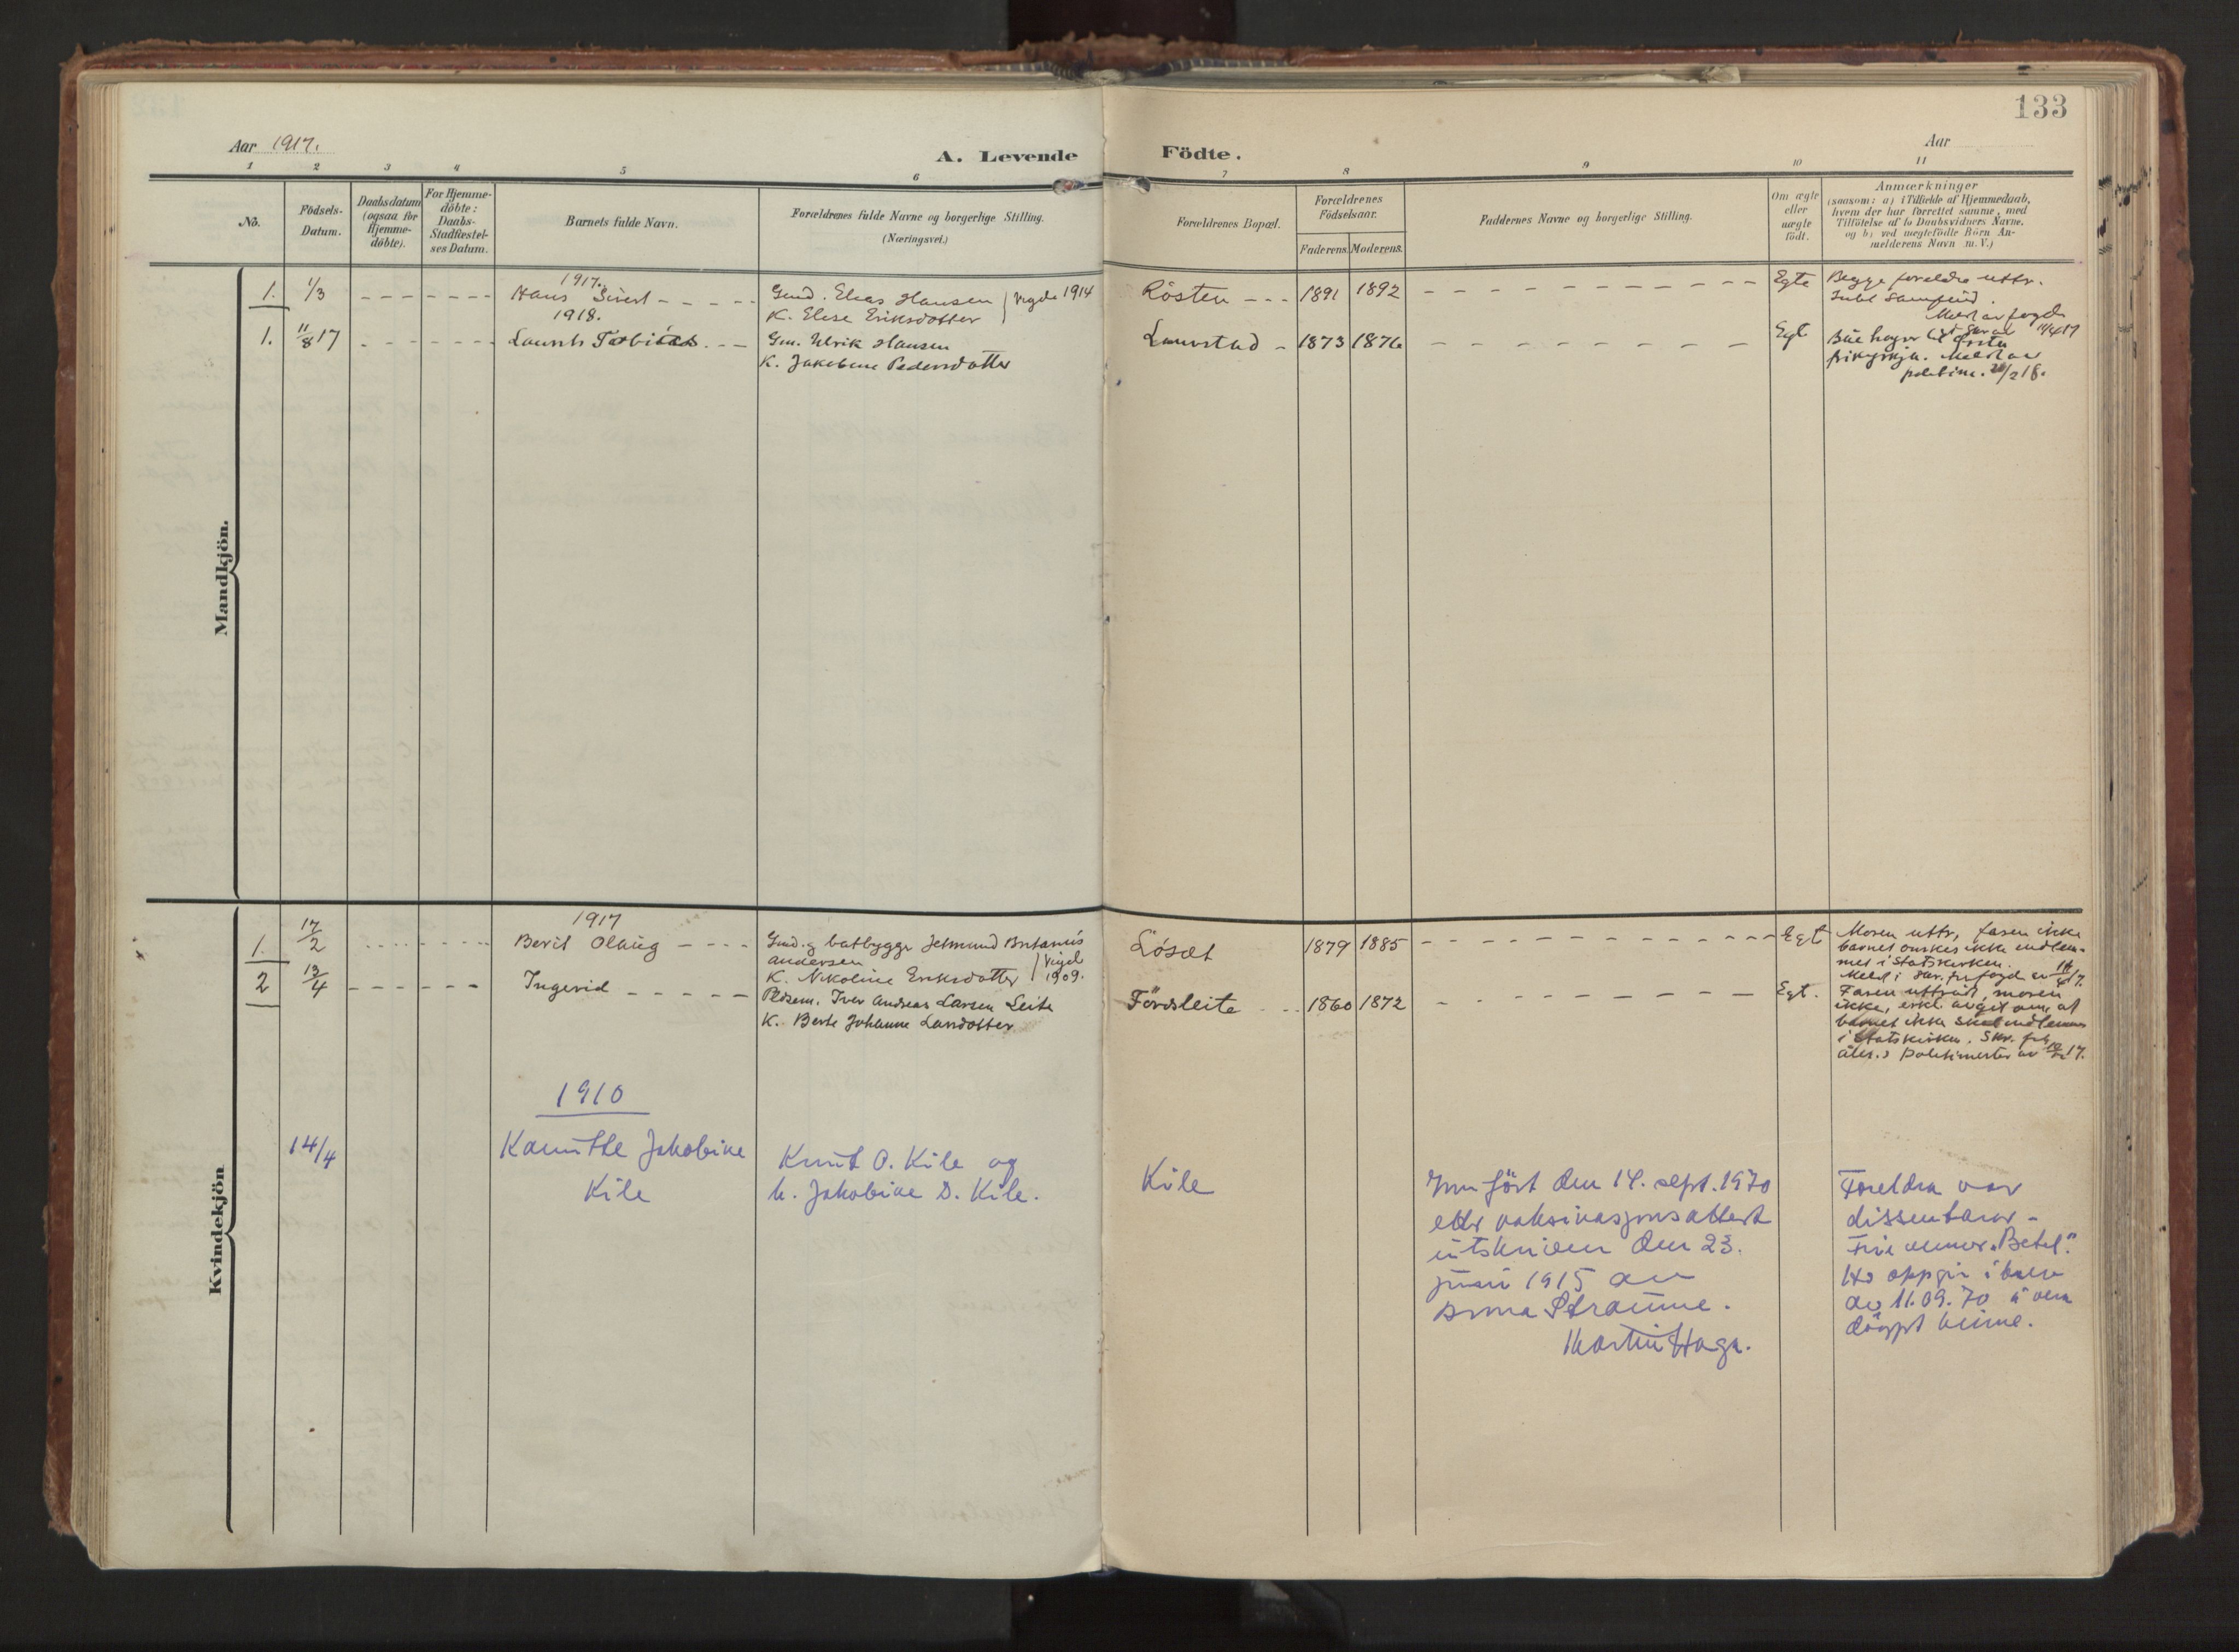 133
Aar 1917.
A. Levende Födte.
Aar
1 2 3 4 5 6 7 8 9 10 11
No.
Födsels-
Datum.
Daabsdatum
(ogsaa for
Hjemme-
döbte).
For Hjemme-
döbte:
Daabs-
Stadfæstel-
ses Datum.
Barnets fulde Navn.
Forældrenes fulde Navne og borgerlige Stilling.
(Næringsvei.)
Forældrenes Bopæl.
Forældrenes
Födselsaar.
Faderens. Moderens.
Faddernes Navne og borgerlige Stilling.
Om ægte
eller
uægte
födt.
Anmærkninger
(saasom: a) i Tilfælde af Hjemmedaab,
hvem der har forrettet samme, med
Tilföielse af to Daabsvidners Navne.
og b) ved uægtefödte Börn An-
melderens Navn m. V.)
Mandkjön.
1917.
1. 1/3 Hans Sivert
Gmd. Elias Hansen
K. Elise Eriksdotter
Vigde 1914
Røsten 1891 1892 Egte
Begge foreldre uttr.
1918.
1. 11/8 17
Gm. Ulrik Hansen
K. Jakobine Pedersdotter
Laurstad 1873 1876 Egt
Kvindekjön
1917
1. 17/2 Berit Olaug
Gmd. og batbyggr Jetmund
Andersen
K. Nikoline Eriksdotter
Vigd
1909.
Løset 1879 1885 Egt
Moren uttr, faren ikke
barnet onskes ikke indlem-
met i Statskirken.
2 13/4 Ingerid
Iver Andreas Larsen Leite
K. Berte Johanne Larsdotter
Førdsleite 1860 1872 Egt.
Faren uttraadt, moren
ikke, erkl. avgit om, at
barnet ikke skal indlemmes
i Statskirken.
1910
14/4 Jakobine
Kile
Knut O. Kile og
k. Jakobine D. Kile.
Kile
Innført den 14. sept. 1970
etter vaksinasjonsattest
utskriven den 23.
juni 1915 av
Straume.
Martin Haga.
Foreldra var
dissentarar -
Frie venner "Betel."
Ho oppgir i brev
av 11.09.70 å vera
døypt heime.